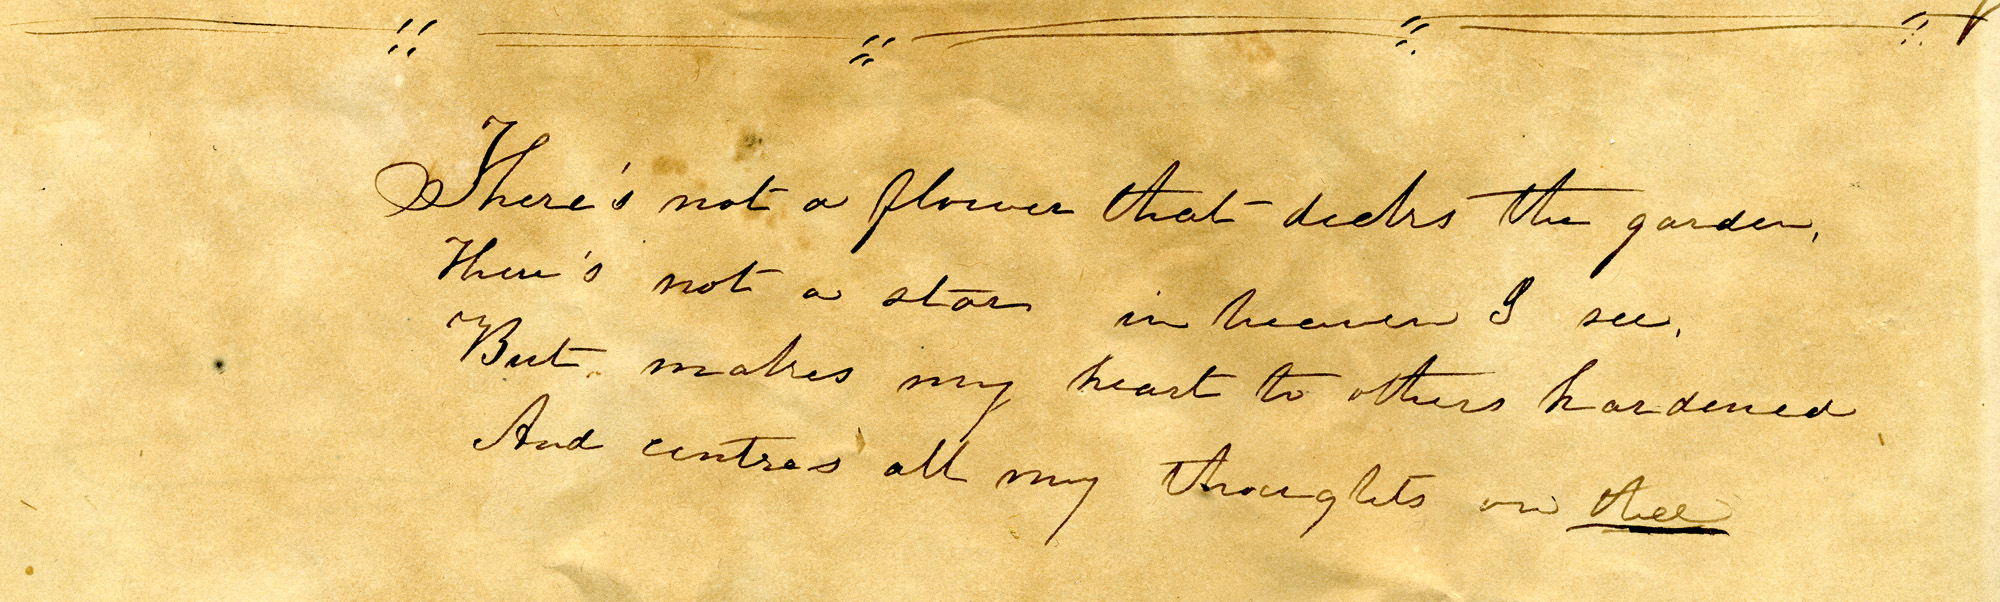 There's not a flower that decks the garden,
There's not a star in heaven I see,
But makes my heart to others hardened
And centres all my thoughts on thee